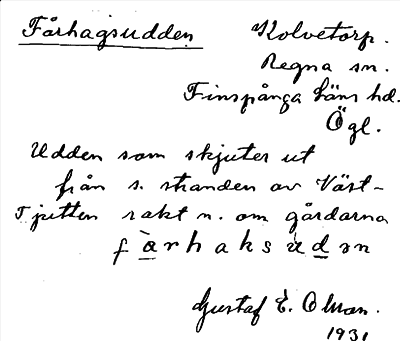 Fårhagsudden
Kolvetorp.
Regna sn.
Finspånga läns hd.
Ögl.
Udden som skjuter ut
från s. stranden av Väst-
Tjutten rakt n. om gårdarna
fà̱rhaksùd̲ən
Gustaf E. Olman.
1931